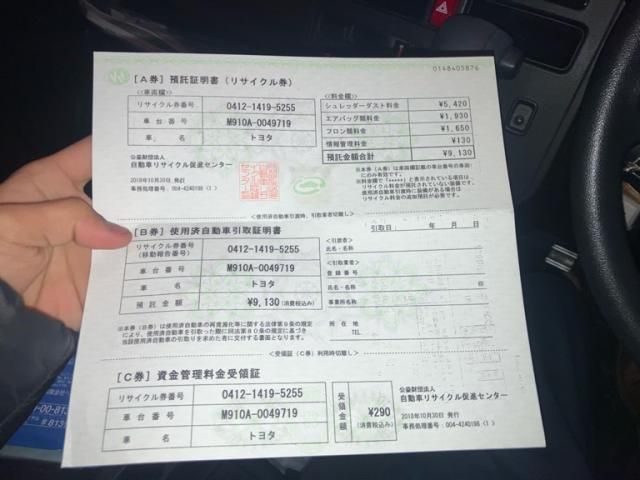 0148403876
[A券] 預託証明書 (リサイクル券)
≪車両欄≫
リサイクル券番号 0412-1419-5255
車台番号 M910A-0049719
車名 トヨタ
公益財団法人
自動車リサイクル促進センター
2018年10月30日 発行
事務処理番号: 004-4240198 (1)
≪料金欄≫
シュレッダーダスト料金 ¥5,420
エアバッグ類料金 ¥1,930
フロン類料金 ¥1,650
情報管理料金 ¥130
預託金額合計 ¥9,130
※本券(A券)は車両欄記載の車台番号の車両
にのみ有効です。
※料金欄で「*****」と表示されている項目は、
リサイクル料金が預託されていない装備です。
使用済自動車引渡時に装備がある場合は
リサイクル料金の追加預託が必要です。
<使用済自動車引渡時、引取業者切離し>
[B券] 使用済自動車引取証明書
リサイクル券番号
(移動報告番号) 0412-1419-5255
車台番号 M910A-0049719
車名 トヨタ
預託金額 ¥9,130 (消費税込み)
※本券(B券)は使用済自動車の再資源化等に関する法律第9条の規定
により、使用済自動車を引取った際に同法第80条の規定に基づき
当該使用済自動車の引取りを求めた者に交付する書面となります。
引取日: 年 月 日
<引渡者>
氏名・名称
<引取業者>
登録番号
氏名・名称 印
事業所名
所在地
TEL
<受領証(C券)利用時切離し>
[C券] 資金管理料金受領証
リサイクル券番号 0412-1419-5255
車台番号 M910A-0049719
車名 トヨタ
受領金額 ¥290 (消費税込み)
公益財団法人
自動車リサイクル促進センター
2018年10月30日 発行
事務処理番号: 004-4240198 (1)